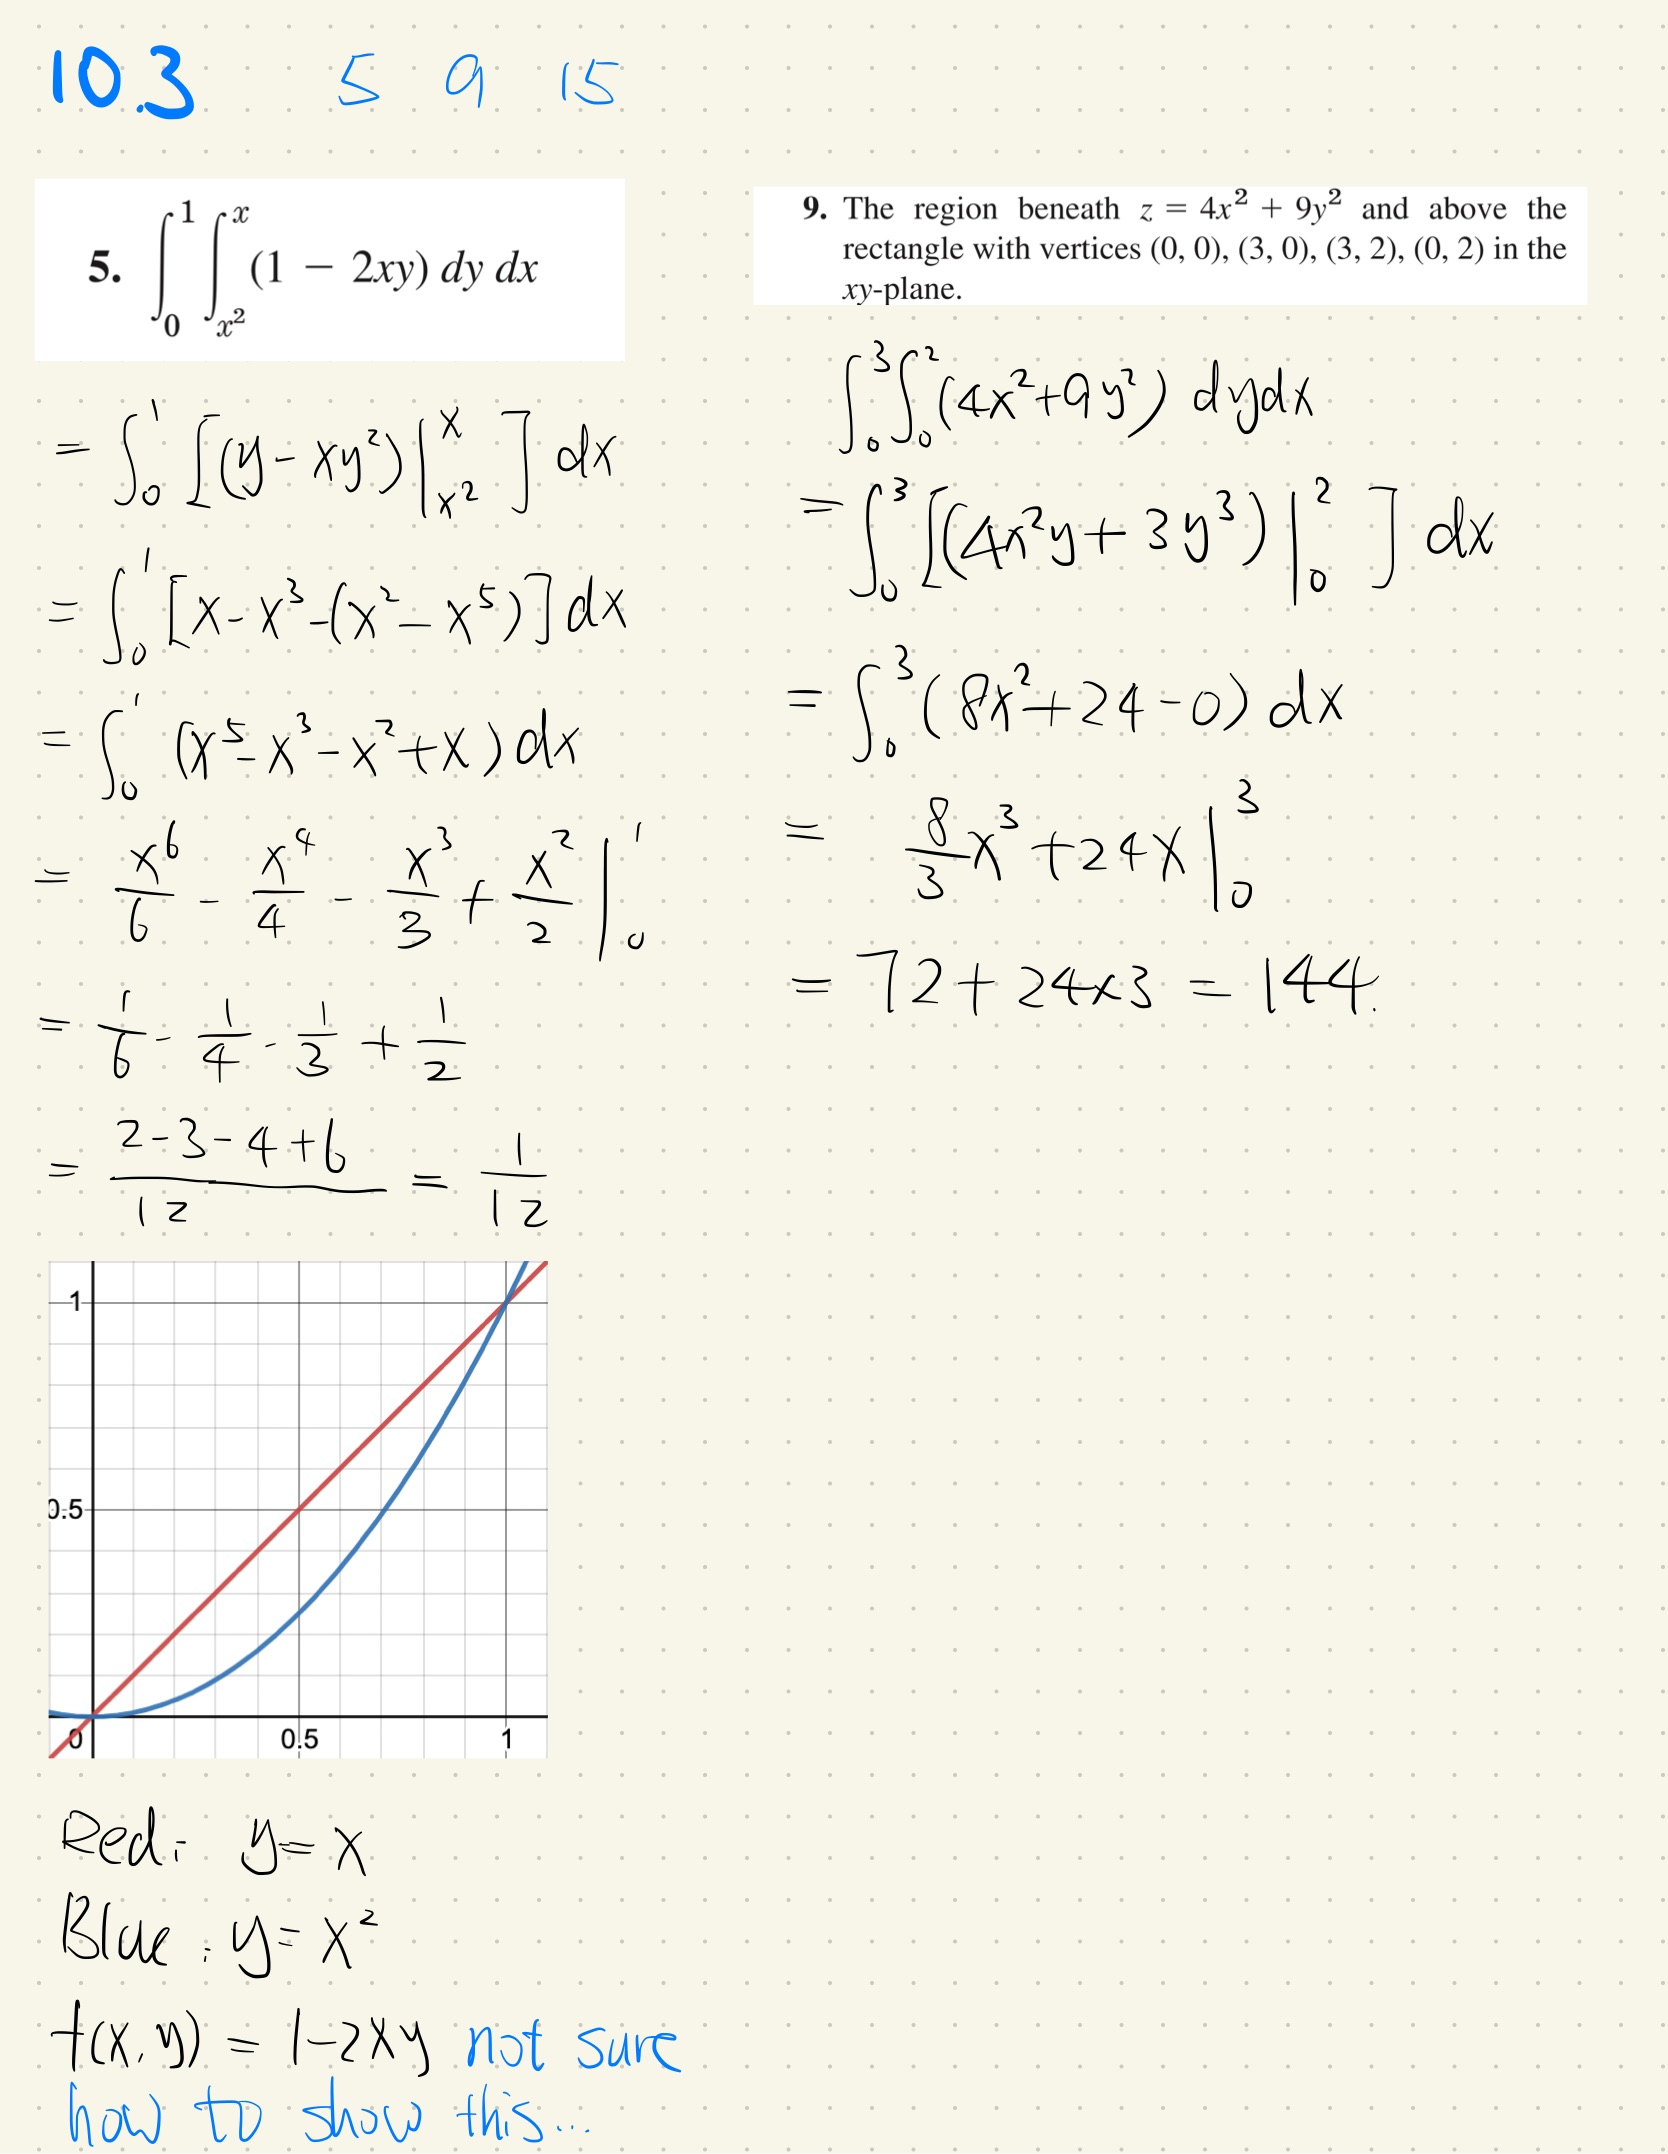 10.3 5 9 15
5. ∫₀¹ ∫ₓ₂ˣ (1 − 2xy) dy dx
= ∫₀¹ [(y - xy²)|ₓ₂ˣ ] dx
= ∫₀¹ [x-x³-(x²-x⁵)] dx
= ∫₀¹ (x⁵-x³-x²+x) dx
= x⁶/6 - x⁴/4 - x³/3 + x²/2 |₀¹
= 1/6 - 1/4 - 1/3 + 1/2
= (2-3-4+6)/12 = 1/12
1
0.5
0 0.5 1
Red: y=x
Blue: y=x²
f(x,y) = 1-2xy not sure
how to show this...
9. The region beneath z = 4x² + 9y² and above the
rectangle with vertices (0, 0), (3, 0), (3, 2), (0, 2) in the
xy-plane.
∫₀³∫₀² (4x²+9y²) dydx
= ∫₀³ [(4x²y+3y³)|₀² ] dx
= ∫₀³ (8x²+24-0) dx
= 8/3 x³+24x |₀³
= 72+24x3 = 144.